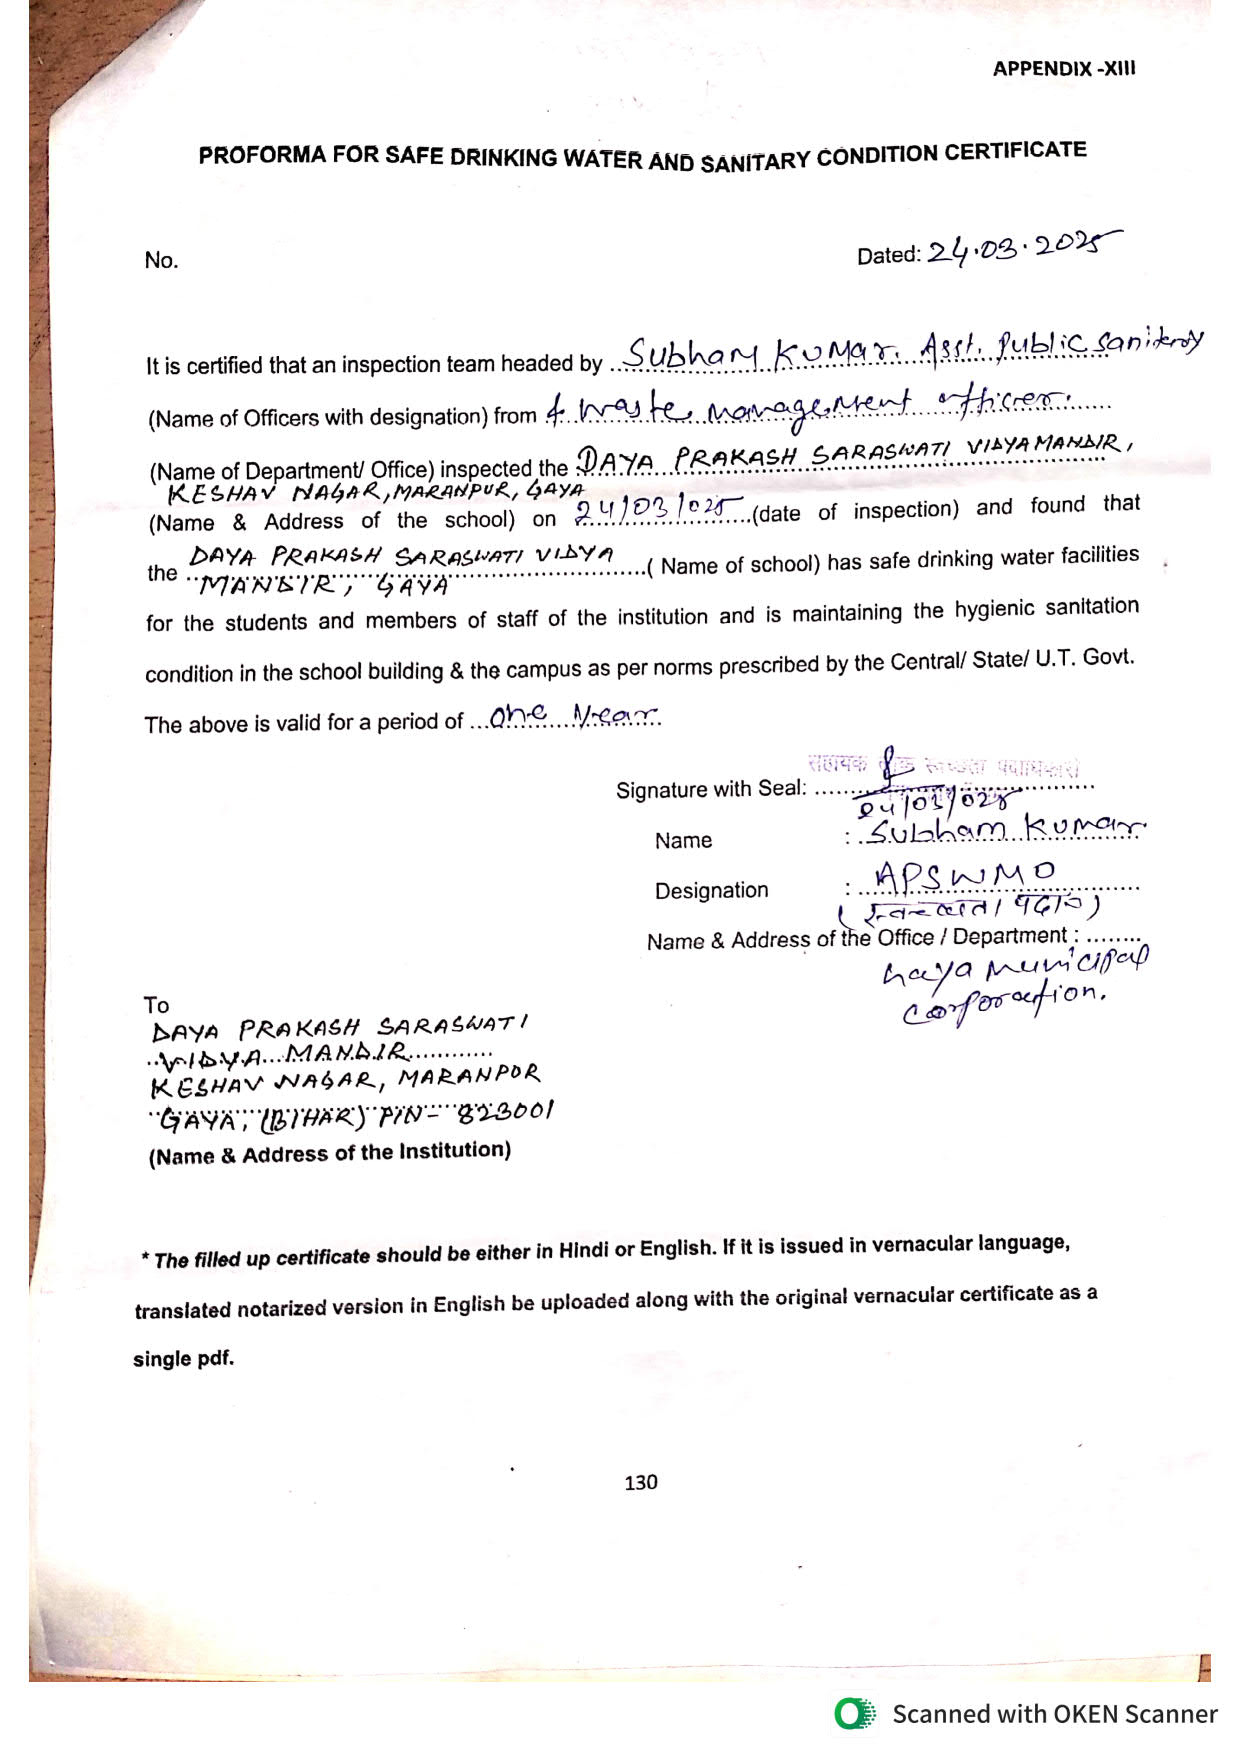 APPENDIX -XIII
PROFORMA FOR SAFE DRINKING WATER AND SANITARY CONDITION CERTIFICATE
No.
Dated: 24.03.2025
It is certified that an inspection team headed by Subham Kumar. Asst. Public Sanitary
(Name of Officers with designation) from & waste management officer.
(Name of Department/ Office) inspected the DAYA PRAKASH SARASWATI VIDYAMANDIR,
KESHAV NAGAR, MARANPUR, GAYA
(Name & Address of the school) on 24/03/025 (date of inspection) and found that
the DAYA PRAKASH SARASWATI VIDYA
MANDIR, GAYA ( Name of school) has safe drinking water facilities
for the students and members of staff of the institution and is maintaining the hygienic sanitation
condition in the school building & the campus as per norms prescribed by the Central/ State/ U.T. Govt.
The above is valid for a period of one Year
सहायक लोक स्वच्छता पदाधिकारी
Signature with Seal:
24/03/025
Name : Subham Kumar
Designation : APSWMO
Name & Address of the Office / Department :
Gaya Municipal
Corporation.
To
DAYA PRAKASH SARASWATI
VIDYA MANDIR
KESHAV NAGAR, MARANPUR
GAYA, (BIHAR) PIN- 823001
(Name & Address of the Institution)
* The filled up certificate should be either in Hindi or English. If it is issued in vernacular language,
translated notarized version in English be uploaded along with the original vernacular certificate as a
single pdf.
130
Scanned with OKEN Scanner